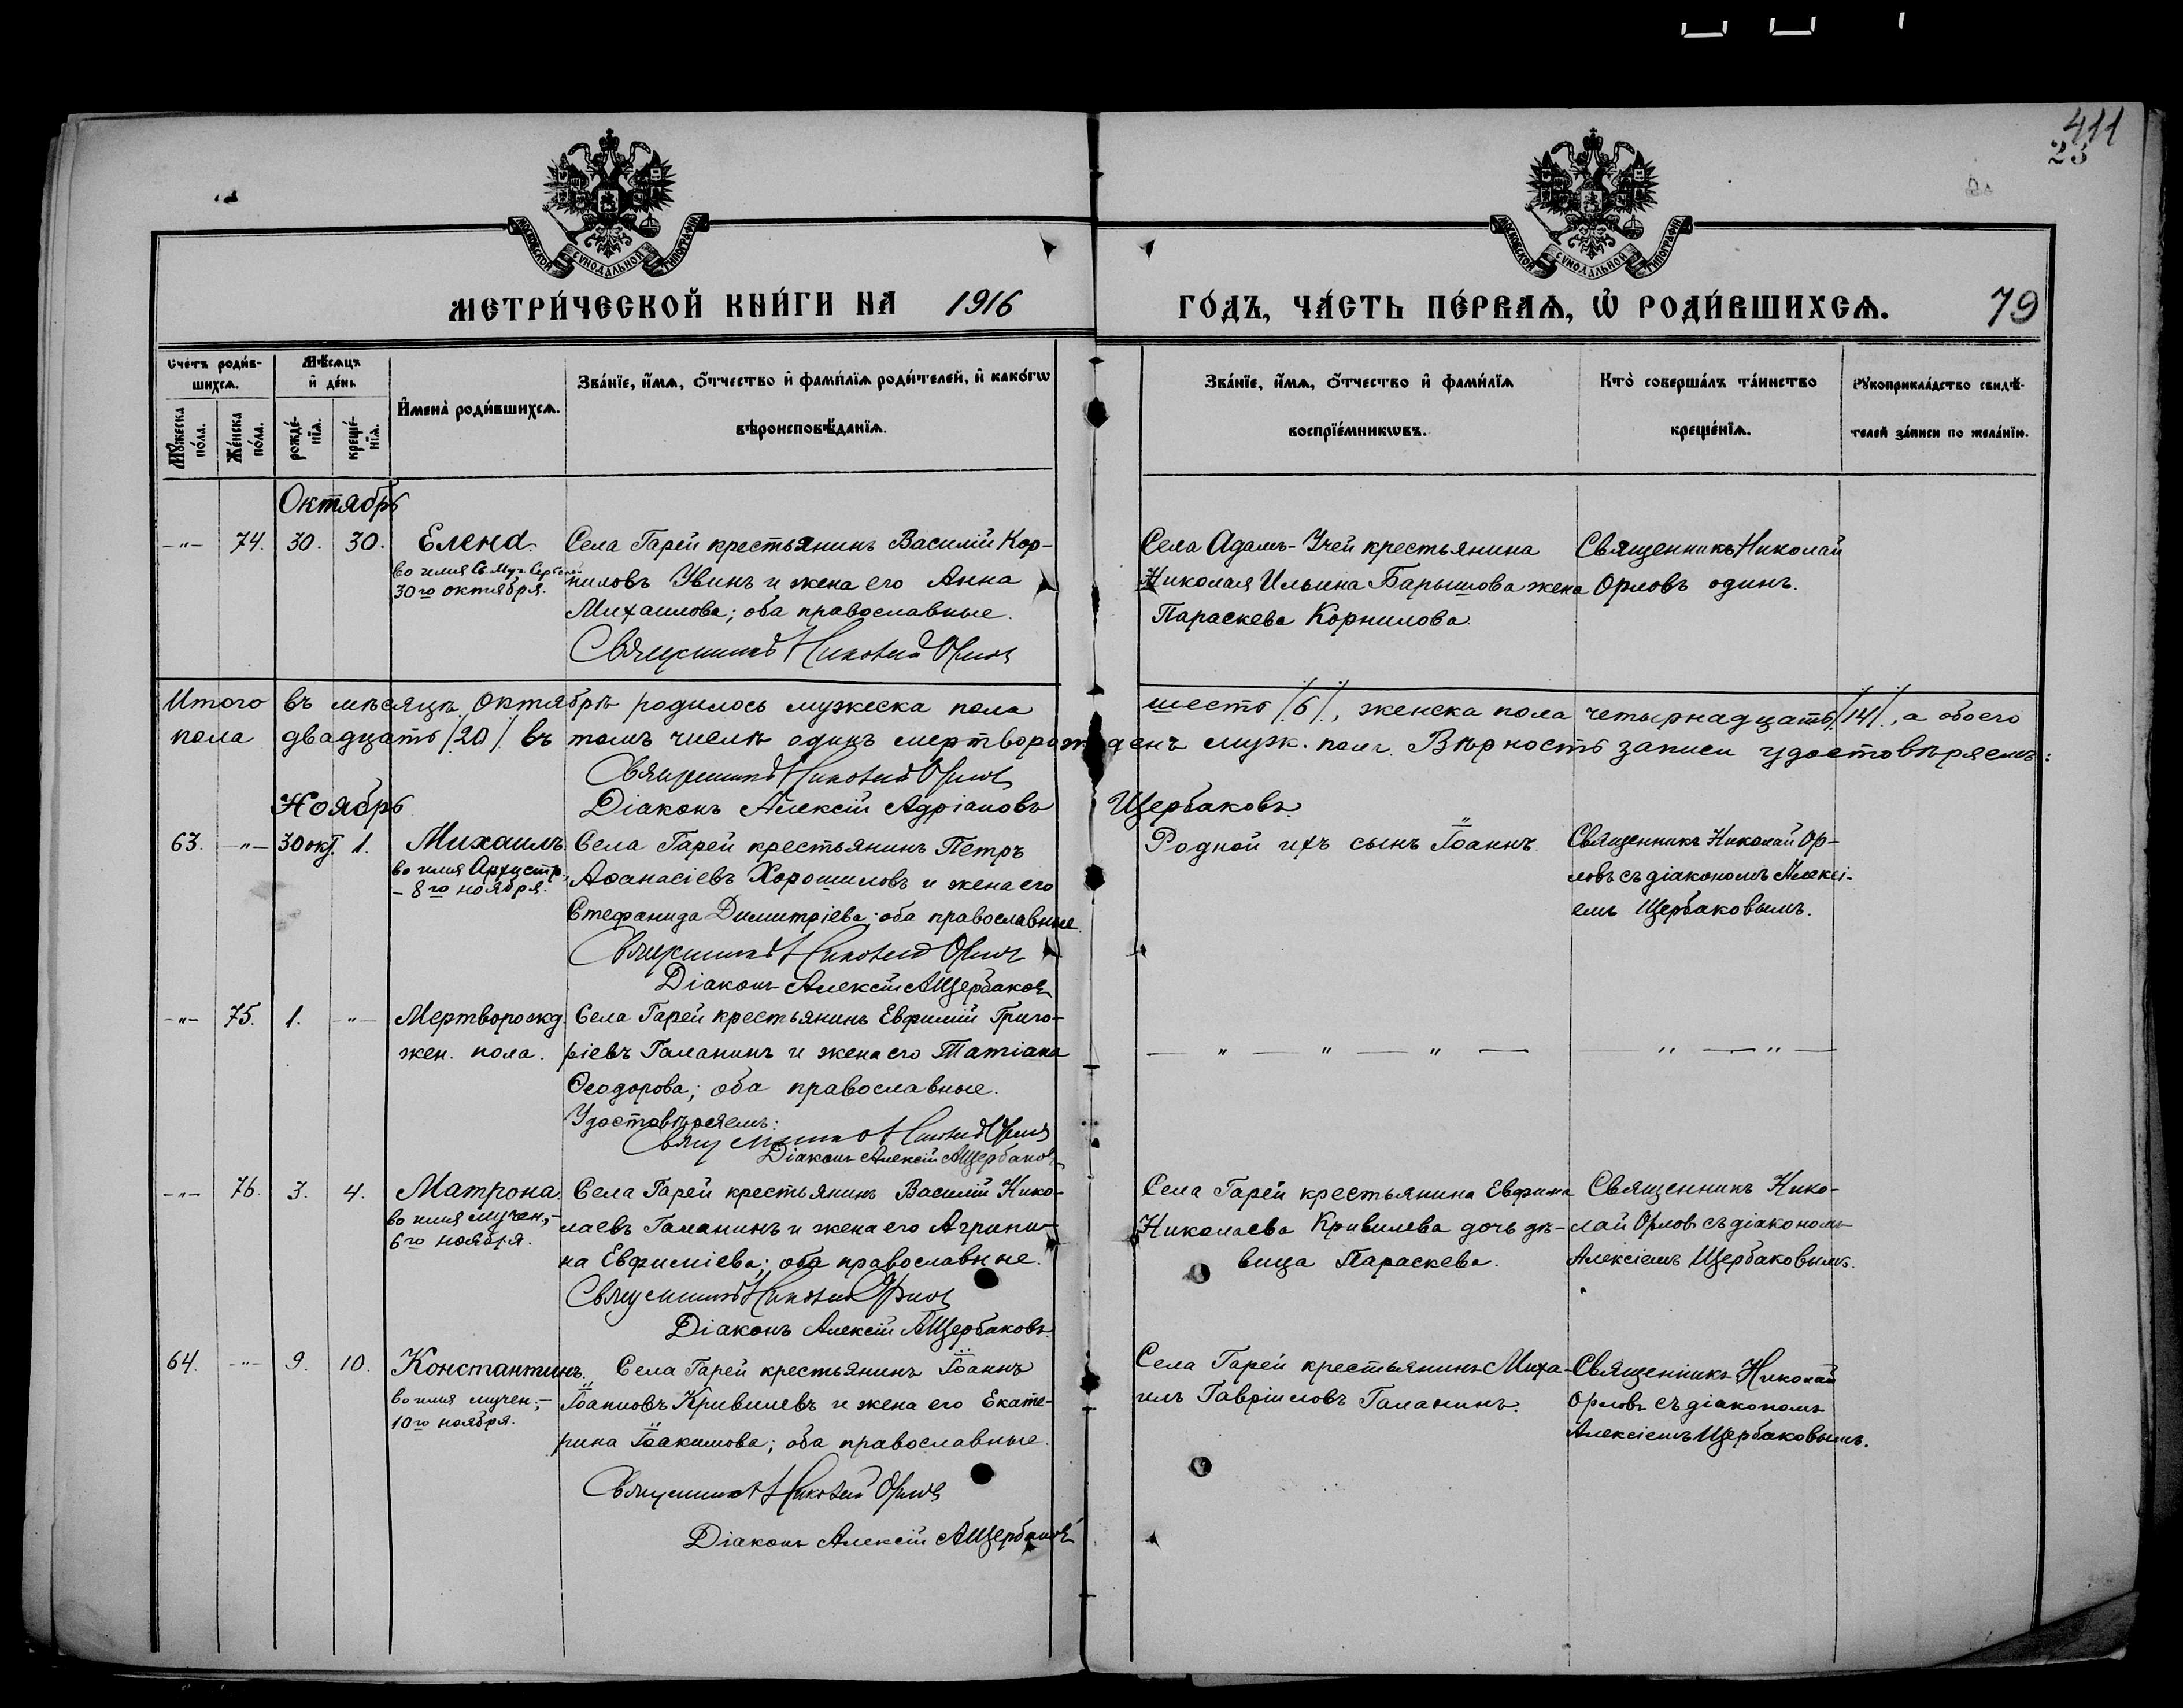 411
23
МОСКОВСКОЙ СѴНОДАЛЬНОЙ ТИПОГРАФІИ
МОСКОВСКОЙ СѴНОДАЛЬНОЙ ТИПОГРАФІИ
МЕТРИ́ЧЕСКОЙ КНИ́ГИ НА 1916
ГО́ДЪ, ЧА́СТЬ ПЕ́РВАѦ, Ѡ҆ РОДИ́ВШИХСѦ. 79
Сче́тъ роди́в-
шихсѧ.
Мꙋ́жеска по́ла.
Же́нска по́ла.
Мѣ́сѧцъ
и҆ де́нь
рожде́-
нїѧ.
креще́-
нїѧ.
И҆мена̀ роди́вшихсѧ.
Зва́нїе, и҆́мѧ, ѻ҆́тчество и҆ фами́лїѧ роди́телей, и҆ како́гѡ
вѣроисповѣ́данїѧ.
Зва́нїе, и҆́мѧ, ѻ҆́тчество и҆ фами́лїѧ
воспрїе́мникѡвъ.
Кто̀ соверша́лъ та́инство
креще́нїѧ.
Рꙋкоприкла́дство свидѣ́-
телей за́писи по жела́нїю.
Октябрь
-"- 74. 30. 30. Елена.
во имя Св. Муч.
30го октября.
Села Гарей крестьянинъ Василій Кор-
ниловъ Увинъ и жена его Анна
Михаилова; оба православные.
Священникъ Николай Орловъ
Села Адамъ-Учей крестьянина
Николая Ильина Барышова жена
Параскева Корнилова.
Священникъ Николай
Орловъ одинъ.
Итого въ мѣсяцѣ Октябрѣ родилось мужеска пола шесть /6/, женска пола четырнадцать /14/, а обоего
пола двадцать /20/ въ томъ числѣ одинъ мертворожденъ муж. пола. Вѣрность записи удостовѣряемъ:
Священникъ Николай Орловъ
Діаконъ Алексій Адріановъ Щербаковъ.
Ноябрь
63. -"- 30 окт. 1. Михаилъ
во имя Архистр.,
- 8го ноября.
Села Гарей крестьянинъ Петръ
Аѳанасіевъ Хорошиловъ и жена его
Стефанида Димитріева; оба православные.
Священникъ Николай Орловъ
Діаконъ Алексій А Щербаковъ
Родной ихъ сынъ Іоаннъ
Священникъ Николай Ор-
ловъ съ діакономъ Алексі-
емъ Щербаковымъ.
-"- 75. 1. -"- Мертворожд.
жен. пола.
Села Гарей крестьянинъ Евфимій Григо-
ріевъ Галанинъ и жена его Татіана
Ѳеодорова; оба православные.
Удостовѣряемъ:
Священникъ Николай Орловъ
Діаконъ Алексій А Щербаковъ
— " — " — " — — " — " —
-"- 76. 3. 4. Матрона.
во имя мучен.,-
6го ноября.
Села Гарей крестьянинъ Василій Нико-
лаевъ Галанинъ и жена его Агрипи-
на Евфиміева; оба православные.
Священникъ Николай Орловъ
Діаконъ Алексій А Щербаковъ
Села Гарей крестьянина Евфима
Николаева Кривилева дочь дѣ-
вица Параскева.
Священникъ Нико-
лай Орловъ съ діакономъ
Алексіемъ Щербаковымъ.
64. -"- 9. 10. Константинъ
во имя мучен.,-
10го ноября.
Села Гарей крестьянинъ Іоаннъ
Іоанновъ Кривилевъ и жена его Екате-
рина Іоакимова; оба православные.
Священникъ Николай Орловъ
Діаконъ Алексій А Щербаковъ
Села Гарей крестьянинъ Миха-
илъ Гавріиловъ Галанинъ.
Священникъ Николай
Орловъ съ діакономъ
Алексіемъ Щербаковымъ.